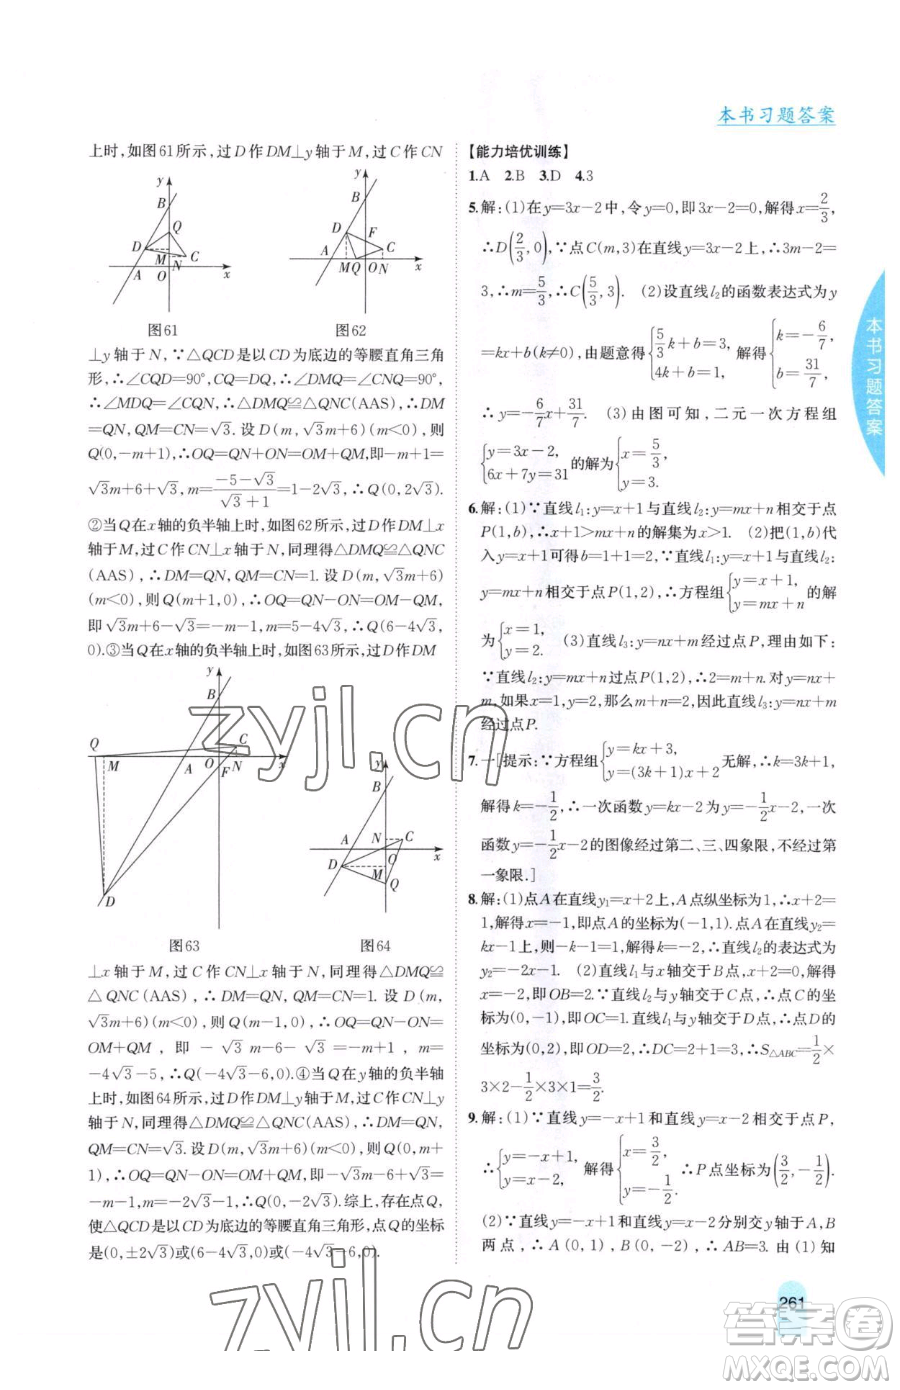 本书习题答案
上时,如图61所示,过D作DM⊥y轴于M,过C作CN
图61
图62
⊥y轴于N,∵△QCD是以CD为底边的等腰直角三角
形,∴∠CQD=90°,CQ=DQ,∴∠DMQ=∠CNQ=90°,
∴∠MDQ=∠CQN,∴△DMQ≌△QNC(AAS),∴DM
=NQ,DM=CN=√3.设D(m,√3m+6)(m<0),则
Q(0,-m+1),∴OQ=QN+ON=OM+QM,即
√3m+6+√3=(-5-√3)/(√3+1)=1-2√3,∴Q(0,2√3).
②当Q在x轴的负半轴上时,如图62所示,过D作DM⊥x
轴于M,过C作CN⊥x轴于N,同理得△DMQ≌△QNC
(AAS),∴DM=QN,QM=CN=1.设D(m,√3m+6)
(m<0),则Q(m+1,0),∴OQ=QN-ON=OM-QM,
即√3m+6-√3=-m-1,m=5-4√3,∴Q(6-4√3,
0).③当Q在x轴的负半轴上时,如图63所示,过D作DM
图63
图64
⊥x轴于M,过C作CN⊥x轴于N,同理得△DMQ≌
△QNC(AAS),∴DM=QN,QM=CN=1.设D(m,
√3m+6)(m<0),则Q(m-1,0),∴OQ=QN-ON=
OM+QM,即-√3m-6-√3=-m+1,m=
-4√3-5,∴Q(-4√3-6,0).④当Q在y轴的负半轴
上时,如图64所示,过D作DM⊥y轴于M,过C作CN⊥y
轴于N,同理得△DMQ≌△QNC(AAS),∴DM=QN,
QM=CN=√3.设D(m,√3m+6)(m<0),则Q(0,m+
1),∴OQ=QN-ON=OM+QM,即-√3m-6+√3=
-m-1,m=-2√3-1,∴Q(0,-2√3).综上,存在点Q,
使△QCD是以CD为底边的等腰直角三角形,点Q的坐标
是(0,±2√3)或(6-4√3,0)或(-4√3-6,0).
【能力培优训练】
1.A 2.B 3.D 4.3
5.解:(1)在y=3x-2中,令y=0,即3x-2=0,解得x=2/3,
∴D(2/3,0),∵点C(m,3)在直线y=3x-2上,∴3m-2=
3,∴m=5/3,∴C(5/3,3). (2)设直线l₂的函数表达式为y
=kx+b(k≠0),由题意得{5/3k+b=3, 4k+b=1,解得{k=-6/7, b=31/7,
∴y=-6/7x+31/7. (3)由图可知,二元一次方程组
{y=3x-2, 6x+7y=31的解为{x=5/3, y=3.
6.解:(1)∵直线l₁:y=x+1与直线l₂:y=mx+n相交于点
P(1,b),∴x+1>mx+n的解集为x>1. (2)把(1,b)代
入y=x+1可得b=1+1=2.∵直线l₁:y=x+1与直线l₂:
y=mx+n相交于点P(1,2),∴方程组{y=x+1, y=mx+n的解
为{x=1, y=2. (3)直线l₃:y=nx+m经过点P,理由如下:
∵直线l₂:y=mx+n过点P(1,2),∴2=m+n.对y=nx+
m,如果x=1,y=2,那么m+n=2,因此直线l₃:y=nx+m
经过点P.
7.一[提示:∵方程组{y=kx+3, y=(3k+1)x+2无解,∴k=3k+1,
解得k=-1/2,∴一次函数y=kx-2为y=-1/2x-2,一次
函数y=-1/2x-2的图像经过第二、三、四象限,不经过第
一象限.]
8.解:(1)点A在直线y₁=x+2上,A点纵坐标为1,∴x+2=
1,解得x=-1,即点A的坐标为(-1,1).点A在直线y₂=
kx-1上,则有-k-1=1,解得k=-2,∴直线的表达式为
y₂=-2x-1. (2)∵直线y₁与x轴交于B点,∴x+2=0,x
=-2,即OB=2.∵直线y₂与y轴交于C点,∴C点坐标为
(0,-1),即OC=1.直线y₁与y轴交于D点,∴点D的
坐标为(0,2),即OD=2,∴DC=2+1=3,∴S△ABC=1/2×
3×2-1/2×3×1=3/2.
9.解:(1)∵直线y=-x+1和直线y=x-2相交于点P,
∴{y=-x+1, y=x-2,解得{x=3/2, y=-1/2.∴P点坐标为(3/2,-1/2).
(2)∵直线y=-x+1和直线y=x-2分别交y轴于A,B
两点,∴A(0,1),B(0,-2),∴AB=3.由(1)知
本书习题答案
261
zyjl.cn
zyjl.cn
答案圈
MXQE.COM